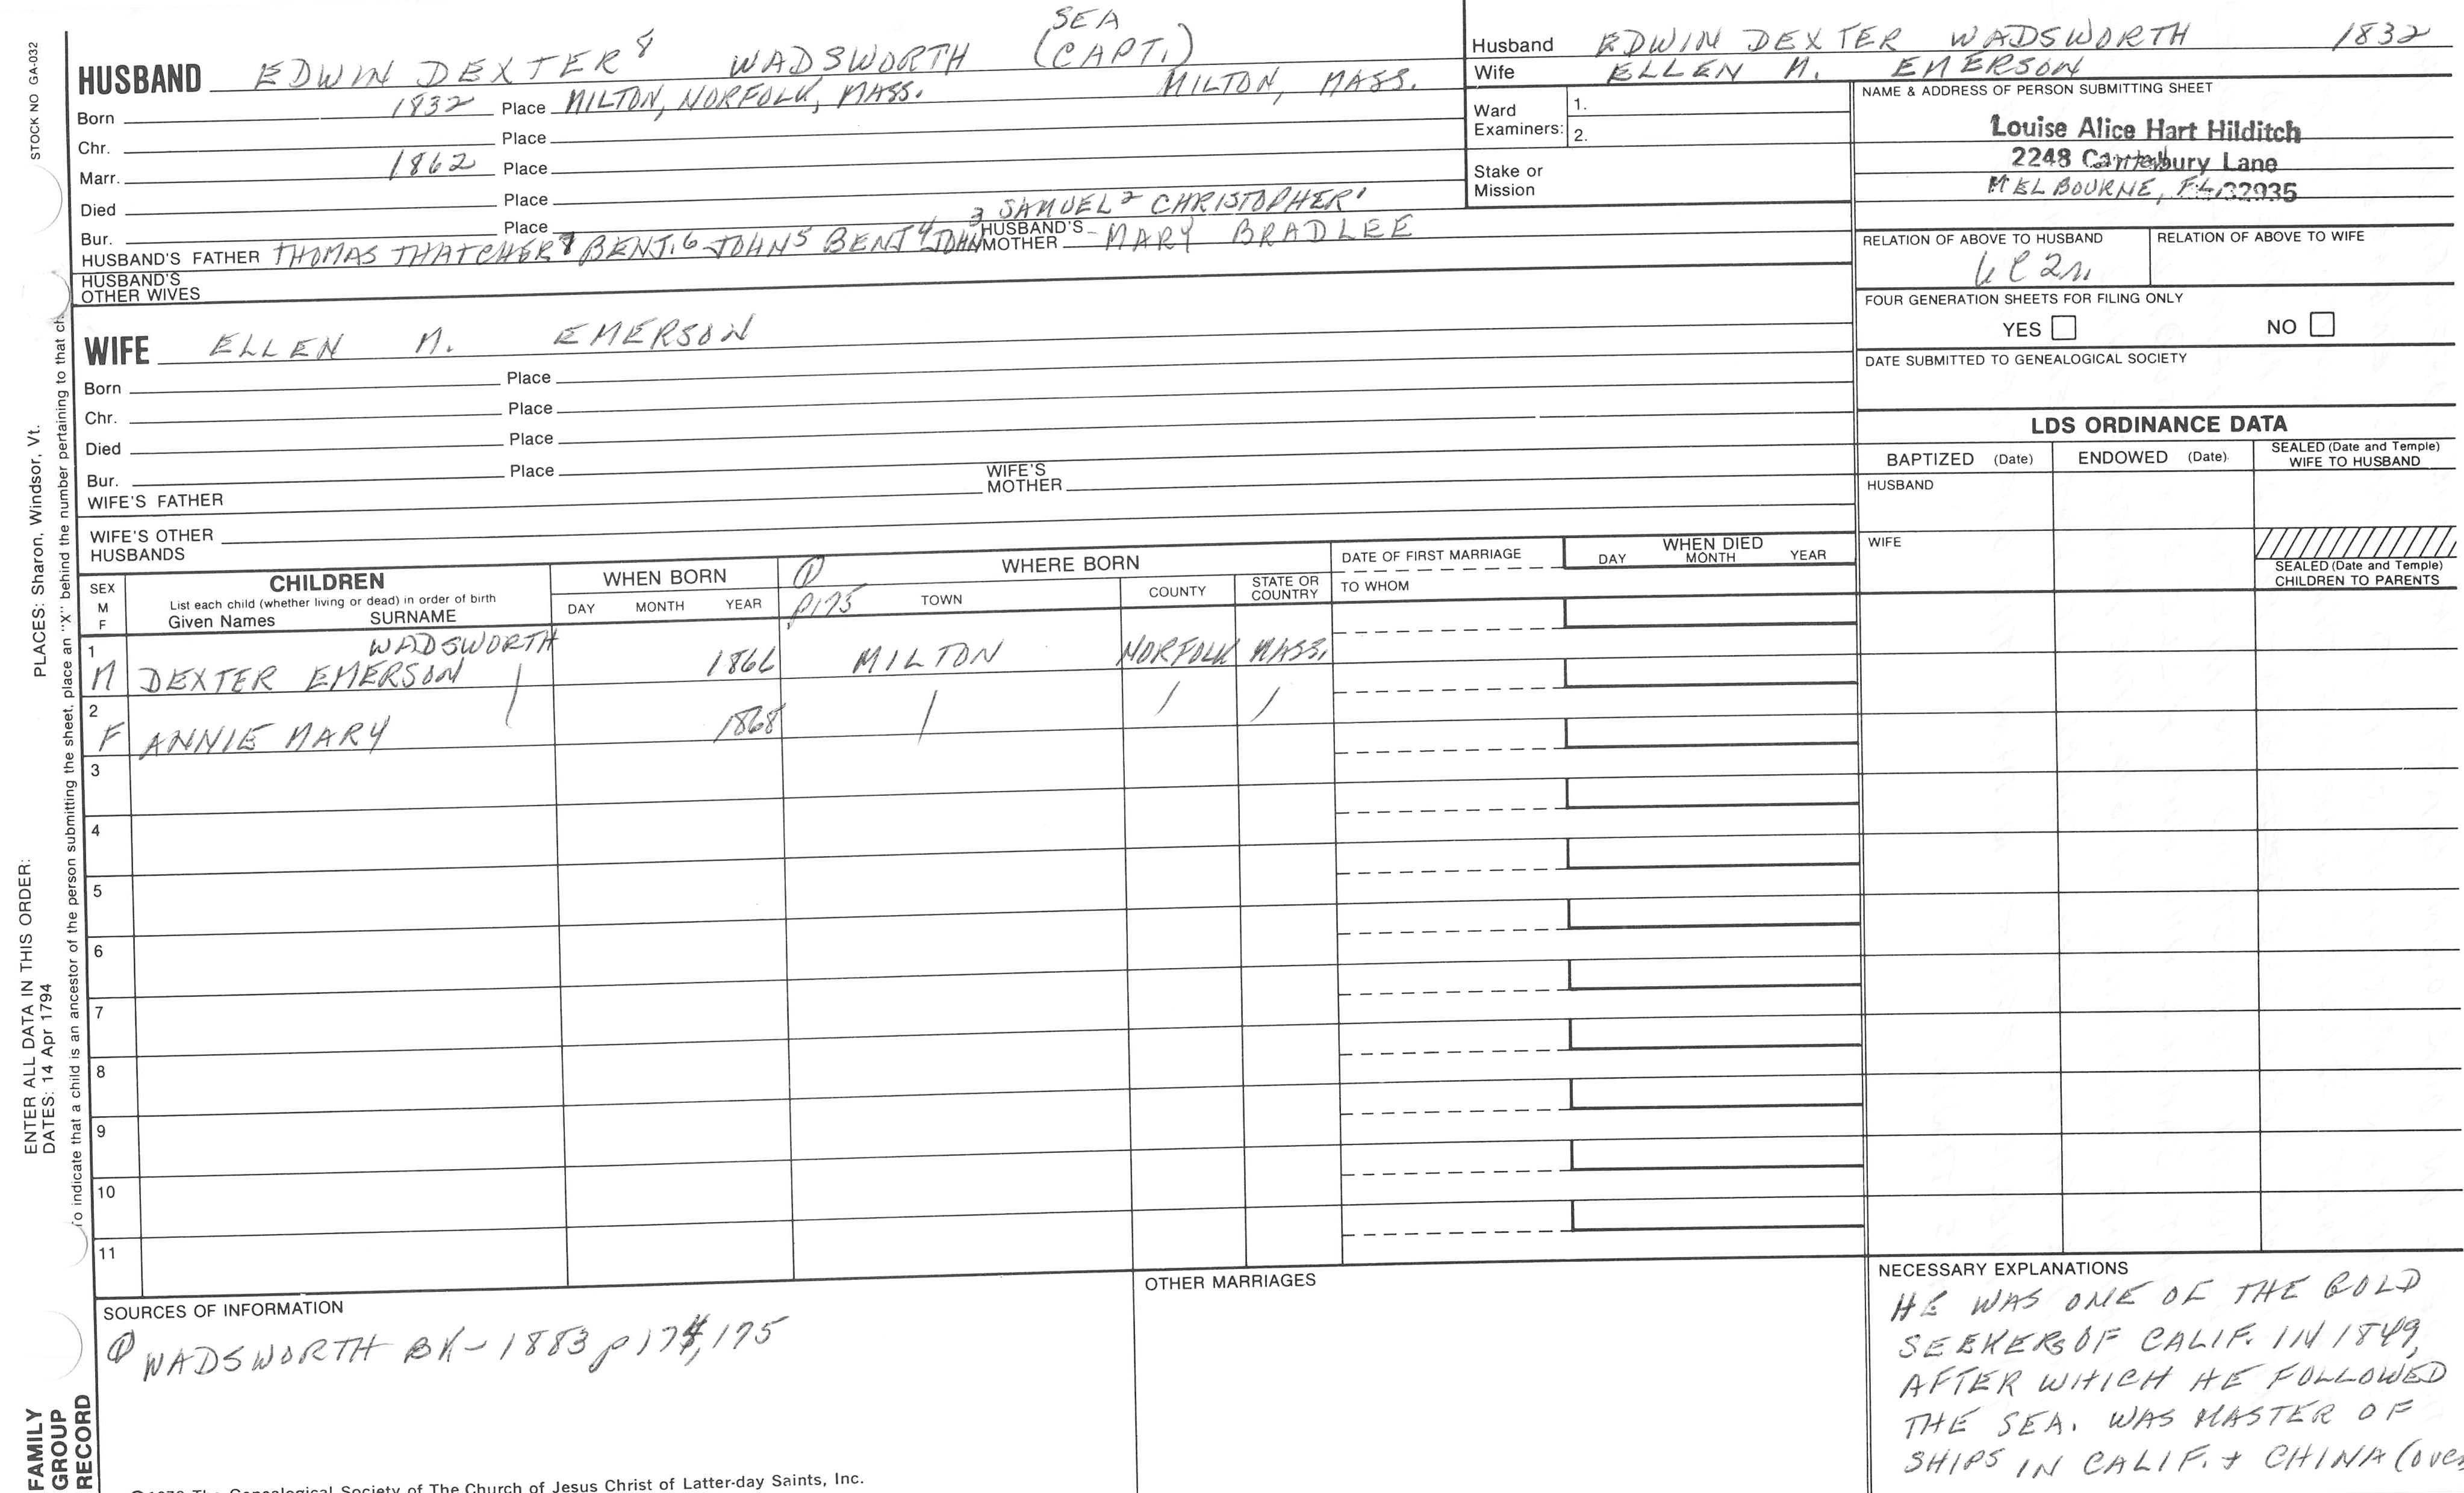 STOCK NO GA-032
PLACES: Sharon, Windsor, Vt.
ENTER ALL DATA IN THIS ORDER:
DATES: 14 Apr 1794
To indicate that a child is an ancestor of the person submitting the sheet, place an "X" behind the number pertaining to that ch
FAMILY
GROUP
RECORD
SEA
HUSBAND EDWIN DEXTER 8 WADSWORTH (CAPT.)
Born 1832 Place MILTON, NORFOLK, MASS. MILTON, MASS.
Chr. Place
Marr. 1862 Place
Died Place
3 SAMUEL 2 CHRISTOPHER 1
Bur. Place
HUSBAND'S FATHER THOMAS THATCHER 7 BENJ. 6 JOHN 5 BENJ 4 JOHN HUSBAND'S MOTHER MARY BRADLEE
HUSBAND'S
OTHER WIVES
WIFE ELLEN M. EMERSON
Born Place
Chr. Place
Died Place
Bur. Place
WIFE'S FATHER WIFE'S MOTHER
WIFE'S OTHER
HUSBANDS
Husband EDWIN DEXTER WADSWORTH 1832
Wife ELLEN M. EMERSON
Ward
Examiners: 1.
2.
Stake or
Mission
NAME & ADDRESS OF PERSON SUBMITTING SHEET
Louise Alice Hart Hilditch
2248 Canterbury Lane
MELBOURNE, FL 32935
RELATION OF ABOVE TO HUSBAND RELATION OF ABOVE TO WIFE
FOUR GENERATION SHEETS FOR FILING ONLY
YES NO
DATE SUBMITTED TO GENEALOGICAL SOCIETY
LDS ORDINANCE DATA
BAPTIZED (Date) ENDOWED (Date) SEALED (Date and Temple)
WIFE TO HUSBAND
HUSBAND
WIFE
SEALED (Date and Temple)
CHILDREN TO PARENTS
SEX
M
F
CHILDREN
List each child (whether living or dead) in order of birth
Given Names SURNAME
WHEN BORN
DAY MONTH YEAR
① p175
WHERE BORN
TOWN COUNTY STATE OR COUNTRY
DATE OF FIRST MARRIAGE
TO WHOM
WHEN DIED
DAY MONTH YEAR
1 WADSWORTH
M DEXTER EMERSON 1866 MILTON NORFOLK MASS.
2
F ANNIE MARY / 1868 / / /
3
4
5
6
7
8
9
10
11
SOURCES OF INFORMATION
① WADSWORTH BK - 1883 p 174, 175
OTHER MARRIAGES
NECESSARY EXPLANATIONS
HE WAS ONE OF THE GOLD
SEEKERS OF CALIF. IN 1849,
AFTER WHICH HE FOLLOWED
THE SEA. WAS MASTER OF
SHIPS IN CALIF. + CHINA (over
The Genealogical Society of The Church of Jesus Christ of Latter-day Saints, Inc.